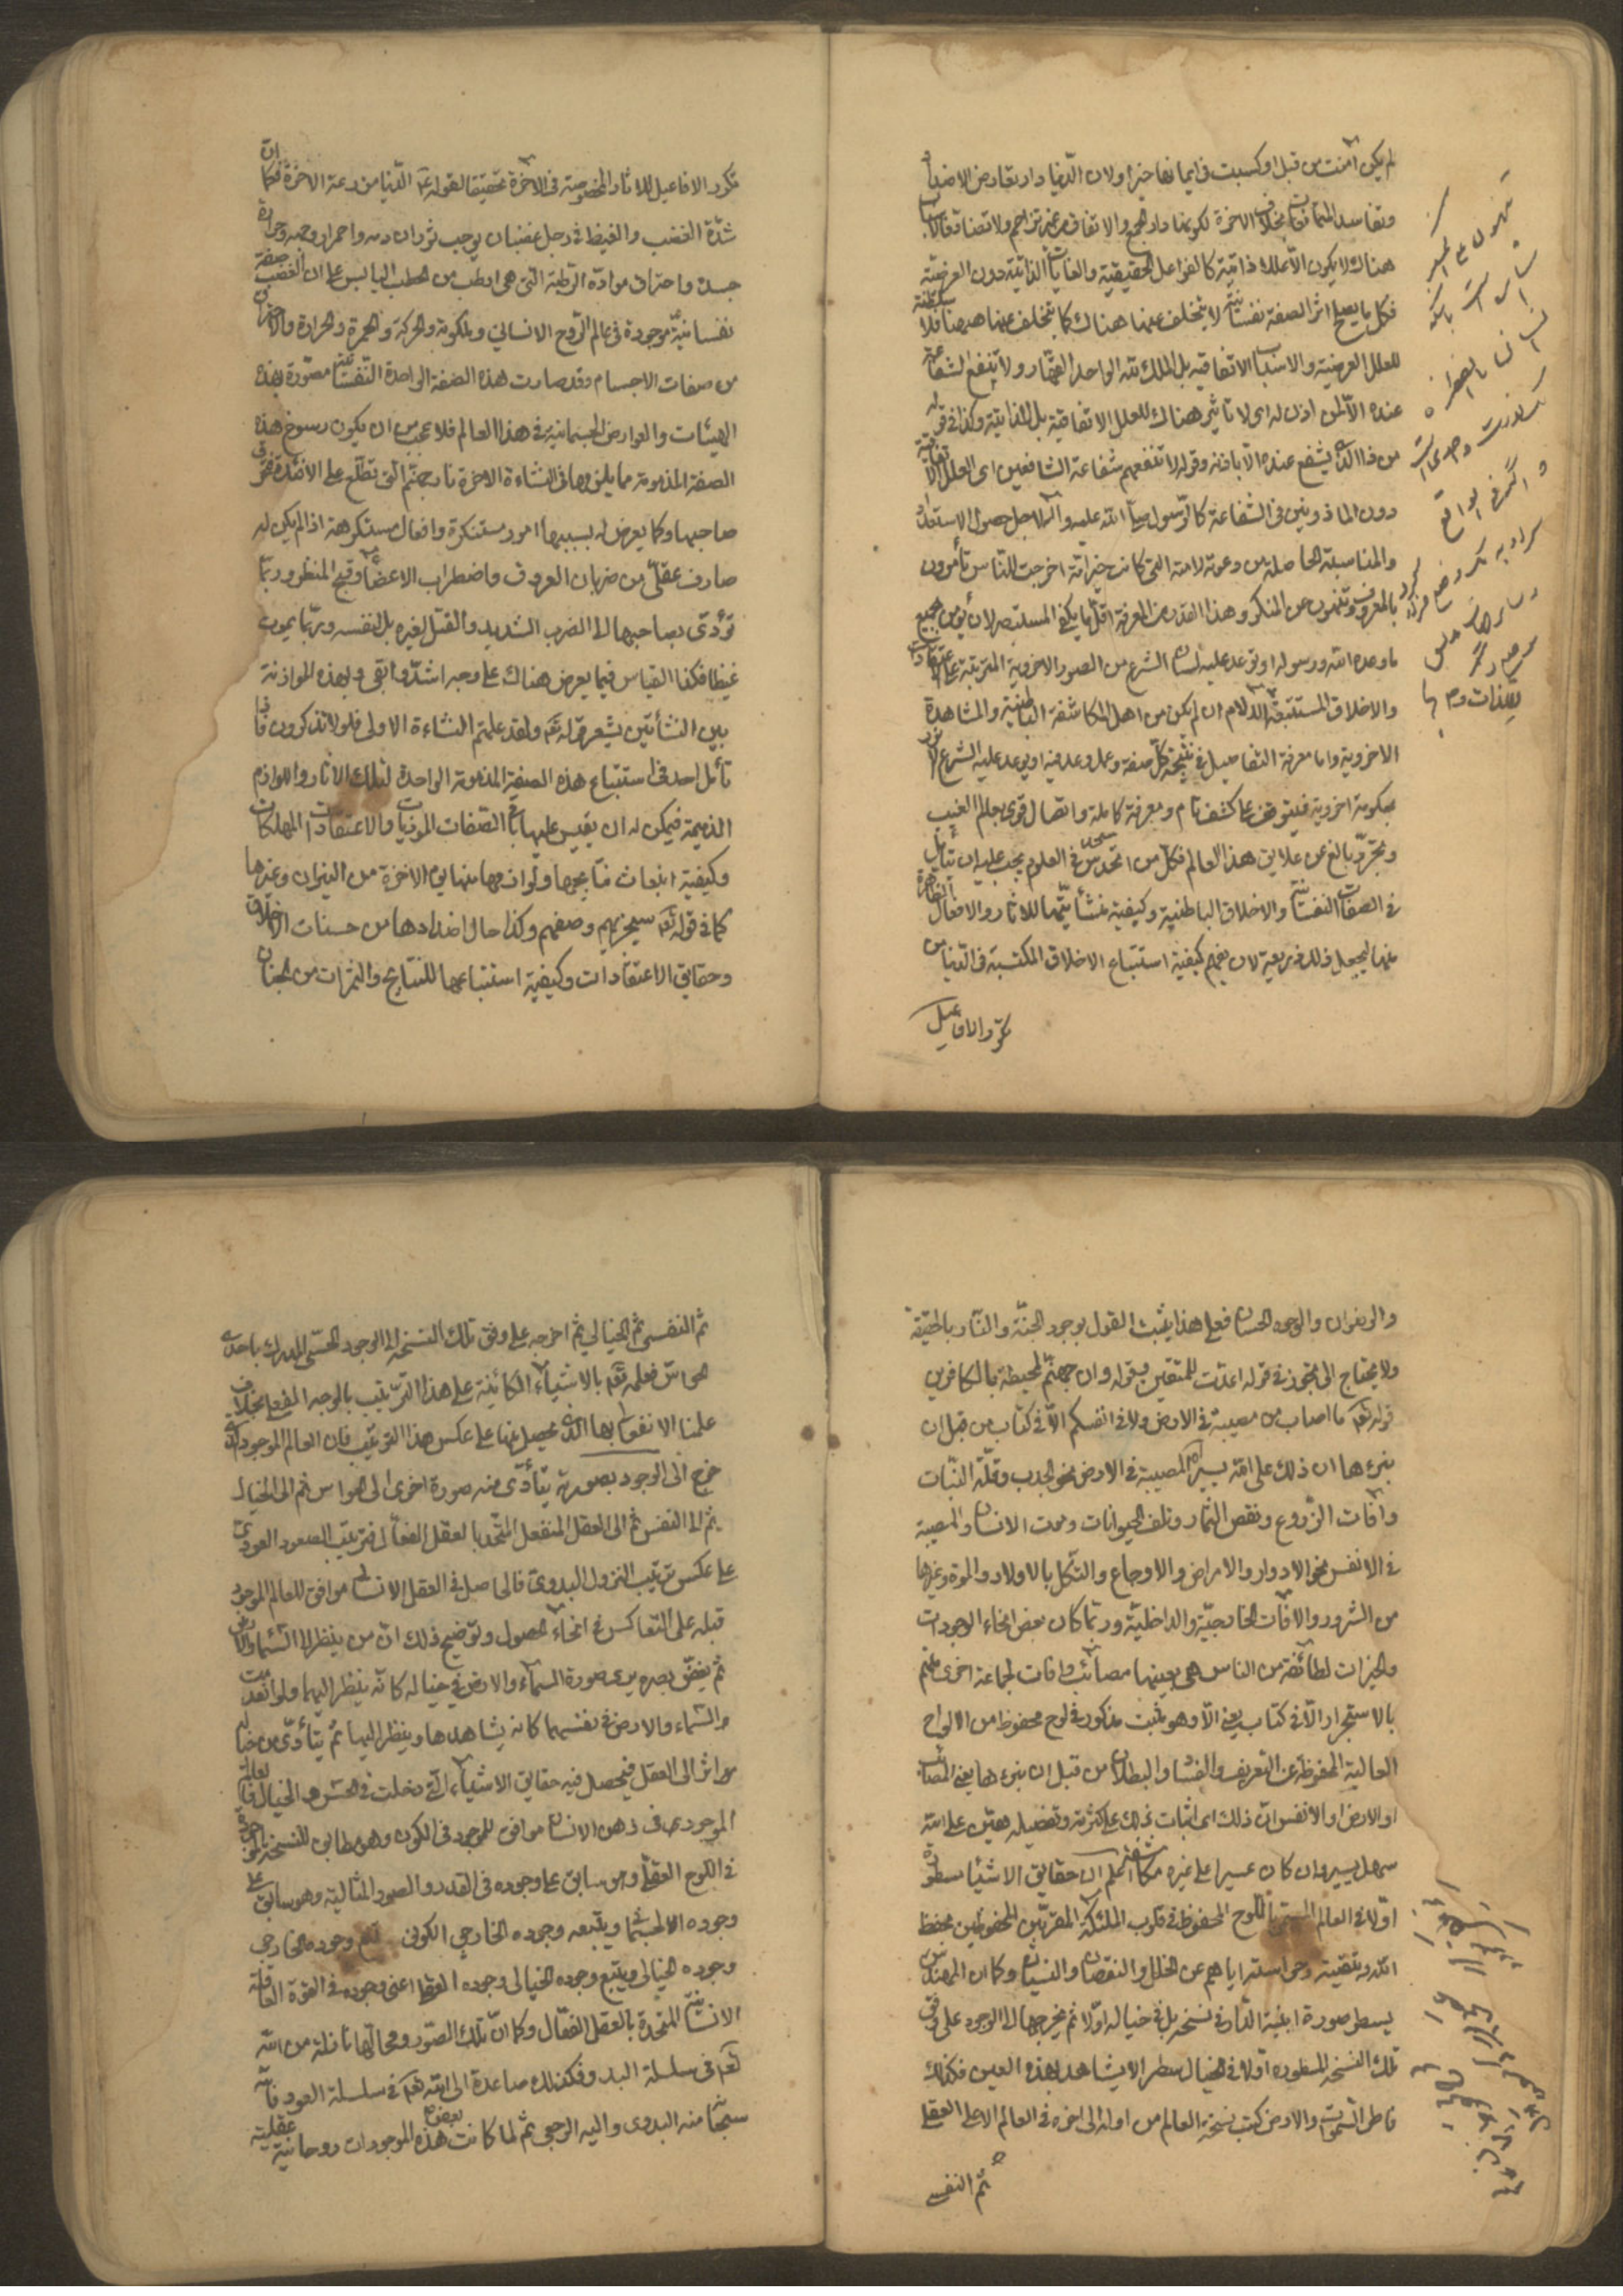 لم يكن آمنت من قبل او كسبت في ايمانها خيرا ولان الدنيا دار تعارض الاضداد
وتفاسد المتمانعات بخلاف الاخرة لكونها دار الجمع والاتفاق من غير تزاحم ولا تضاد فالاسباب
هناك لا يكون الا عللا ذاتية كالفواعل الحقيقية والغايات الذاتية دون العرضية
فكل ما يصلح اثر الصفة نفسانية لا يتخلف عنها هناك كما يتخلف عنها ههنا فلا سلطنة
للعلل العرضية والاسباب الاتفاقية بل الملك لله الواحد القهار ولا تنفع الشفاعة
عنده الا لمن اذن له اي لا تاثير هناك للعلل الاتفاقية بل للذاتية وكذا في قوله
من ذا الذي يشفع عنده الا باذنه وقوله لا تنفعهم شفاعة الشافعين اي العلل الاتفاقية
دون الماذونين في الشفاعة كالرسول صلى الله عليه وآله لاجل حصول الاستعداد
والمناسبة الحاصلة من دعوته لامته التي كانت خير امة اخرجت للناس تأمرون
بالمعروف وتنهون عن المنكر وهذا القدر من المعرفة اقل ما يكفي المستبصر لان يؤمن بجميع
ما وعده الله ورسوله او توعد عليه لسان الشرع من الصور الاخروية المترتبة على الاعتقادات
والاخلاق المستتبعة للالام ان لم يكن من اهل المكاشفة الباطنية والمشاهدة
الاخروية واما معرفة التفاصيل في نتيجة كل صفة وعمل وعد فيه او يوعد عليه الشرع
فيتوقف على كشف تام ومعرفة كاملة واتصال قوي بعالم الغيب
وتجرد بالغ عن علايق هذا العالم فكل من له تحدس في العلوم يجب عليه ان يتأمل
في الصفات النفسانية والاخلاق الباطنية وكيفية منشأيتها للاثار والافعال الظاهرة
منها ليجعل ذلك ذريعة لان يفهم كيفية استتباع الاخلاق المكتسبة في الدنيا من
تكرر الافاعيل
تكرر الافاعيل للاثار المخصوصة في الاخرة تحقيقا لقوله الدنيا مزرعة الاخرة فكما ان
شدة الغضب والغيظ في رجل غضبان يوجب ثوران دمه واحمرار وجهه وحرارة
جسده واحتراق مواده الرطبة التي هي ارطب من الحطب اليابس على ان الغضب صفة
نفسانية موجودة في عالم الروح الانساني وملكوته والحركة والحمرة والحرارة والاحتراق
من صفات الاجسام وقد صارت هذه الصفة الواحدة النفسانية مصورة بهذه
الهيئات والعوارض الجسمانية في هذا العالم فلا عجب من ان يكون رسوخ هذه
الصفة المذمومة مما يلزمها في النشاءة الاخرة نار جهنم التي تطلع على الافئدة فتحرق
صاحبها وكما يعرض له بسببها امور مستنكرة وافعال مستكرهة اذا لم يكن له
صارف عقلي من ضربان العروق واضطراب الاعضاء وقبح المنظر وربما
تؤدي بصاحبها الى الضرب الشديد والقتل لغيره بل لنفسه وربما يموت
غيظا فكذا القياس فيما يعرض هناك على وجه اشد وابقى وبهذه الموازنة
بين النشأتين يشعر قوله تعالى ولقد علمتم النشاءة الاولى فلولا تذكرون فاذا
تأمل احد في استتباع هذه الصفة المذمومة الواحدة لتلك الاثار واللوازم
الذميمة فيمكن له ان يقيس عليها باقي الصفات الموذيات والاعتقادات المهلكات
وكيفية انبعاث نتائجها ولوازمها منها يوم الاخرة من النيران وغيرها
كما في قوله سيجزيهم وصفهم وكذا حال اضدادها من حسنات الاخلاق
وحقايق الاعتقادات وكيفية استتباعها للنتايج والثمرات من الجنان
والرضوان والوجوه الحسان فعلى هذا يثبت القول بوجود الجنة والنار بالحقيقة
ولا يحتاج الى التجوز في قوله اعدت للمتقين وقوله وان جهنم لمحيطة بالكافرين
قوله تعالى ما اصاب من مصيبة في الارض ولا في انفسكم الا في كتاب من قبل ان
نبرءها ان ذلك على الله يسير المصيبة في الارض نحو الجدب وقلة النبات
وآفات الزروع ونقص الثمار وتلف الحيوانات وموت الانسان والمصيبة
في الانفس نحو الادواء والامراض والاوجاع والثكل بالاولاد والموت وغيرها
من الشرور والآفات الخارجية والداخلية وربما كان بعض انحاء الوجودات
والخيرات لطائفة من الناس هي بعينها مصائب وآفات لجماعة اخرى منهم
بالاستجرار الا في كتاب يعني الا وهو مثبت مذكور في لوح محفوظ من الالواح
العالية المحفوظة عن التحريف والفساد والبطلان من قبل ان نبرءها يعني المصائب
او الارض او الانفس ان ذلك اي اثبات ذلك على كثرته وتفصيله هين على الله
سهل يسير وان كان عسيرا على غيره مكاشفة اعلم ان حقايق الاشياء مسطورة
اولا في العالم المسمى باللوح المحفوظ في قلوب الملئكة المقربين المحفوظين بحفظ
الله وتبقيته وحراسته اياهم عن الخلل والنقصان والنسيان وكما ان المهندس
يسطر صورة ابنية الدار في نسخة بل في خياله اولا ثم يخرجها الى الوجود على وفق
تلك النسخة المسطورة اولا في الخيال سطرا لا يشاهد بهذه العين فكذلك
فاطر السموات والارض كتب نسخة العالم من اوله الى اخره في العالم الاعلى العقلي
ثم النفسي
ثم النفسي ثم الخيالي ثم اخرجه على وفق تلك النسخة الى الوجود الحسي المدرك باحدى
الحواس فعلمه تعالى بالاشياء الكائنة على هذا الترتيب بالوجه الفعلي بخلاف
علمنا الانفعالي بها الذي يحصل منها على عكس هذا الترتيب فان العالم الموجود الذي
خرج الى الوجود بصورته يتأدى منه صورة اخرى الى الحواس ثم الى الخيال
ثم الى النفس ثم الى العقل المنفعل المتحد بالعقل الفعال فترتيب الصعود العودي
على عكس ترتيب النزول البدوي فالحاصل في العقل الانساني موافق للعالم الموجود
قبله على التعاكس في انحاء الحصول وتوضيح ذلك ان من ينظر الى السماء والارض
ثم يغض بصره يرى صورة السماء والارض في خياله كانه ينظر اليها ولو انعدمت
السماء والارض في نفسهما كانه يشاهدها وينظر اليها ثم يتأدى من خياله
اثر الى العقل فيحصل فيه حقايق الاشياء التي دخلت في الحس والخيال فالعالم
الموجود في ذهن الانسان موافق للموجود في الكون وهو مطابق للنسخة الموجودة
في اللوح العقلي وهو سابق على وجوده في القدر والصور المثالية وهو سابق على
وجوده الجسماني ويتبعه وجوده الخارجي الكوني ثم وجوده الخارجي
وجوده الخيالي ويتبع وجوده الخيالي وجوده العقلي اعني وجوده في القوة العاقلة
الانسانية المتحدة بالعقل الفعال وكما ان تلك الصور ومحالها نازلة من الله
تعالى في سلسلة البدو فكذلك صاعدة الى الله تعالى في سلسلة العود فانه
سبحانه منه البدو واليه الرجعى ثم لما كانت هذه الموجودات بعضها روحانية عقلية